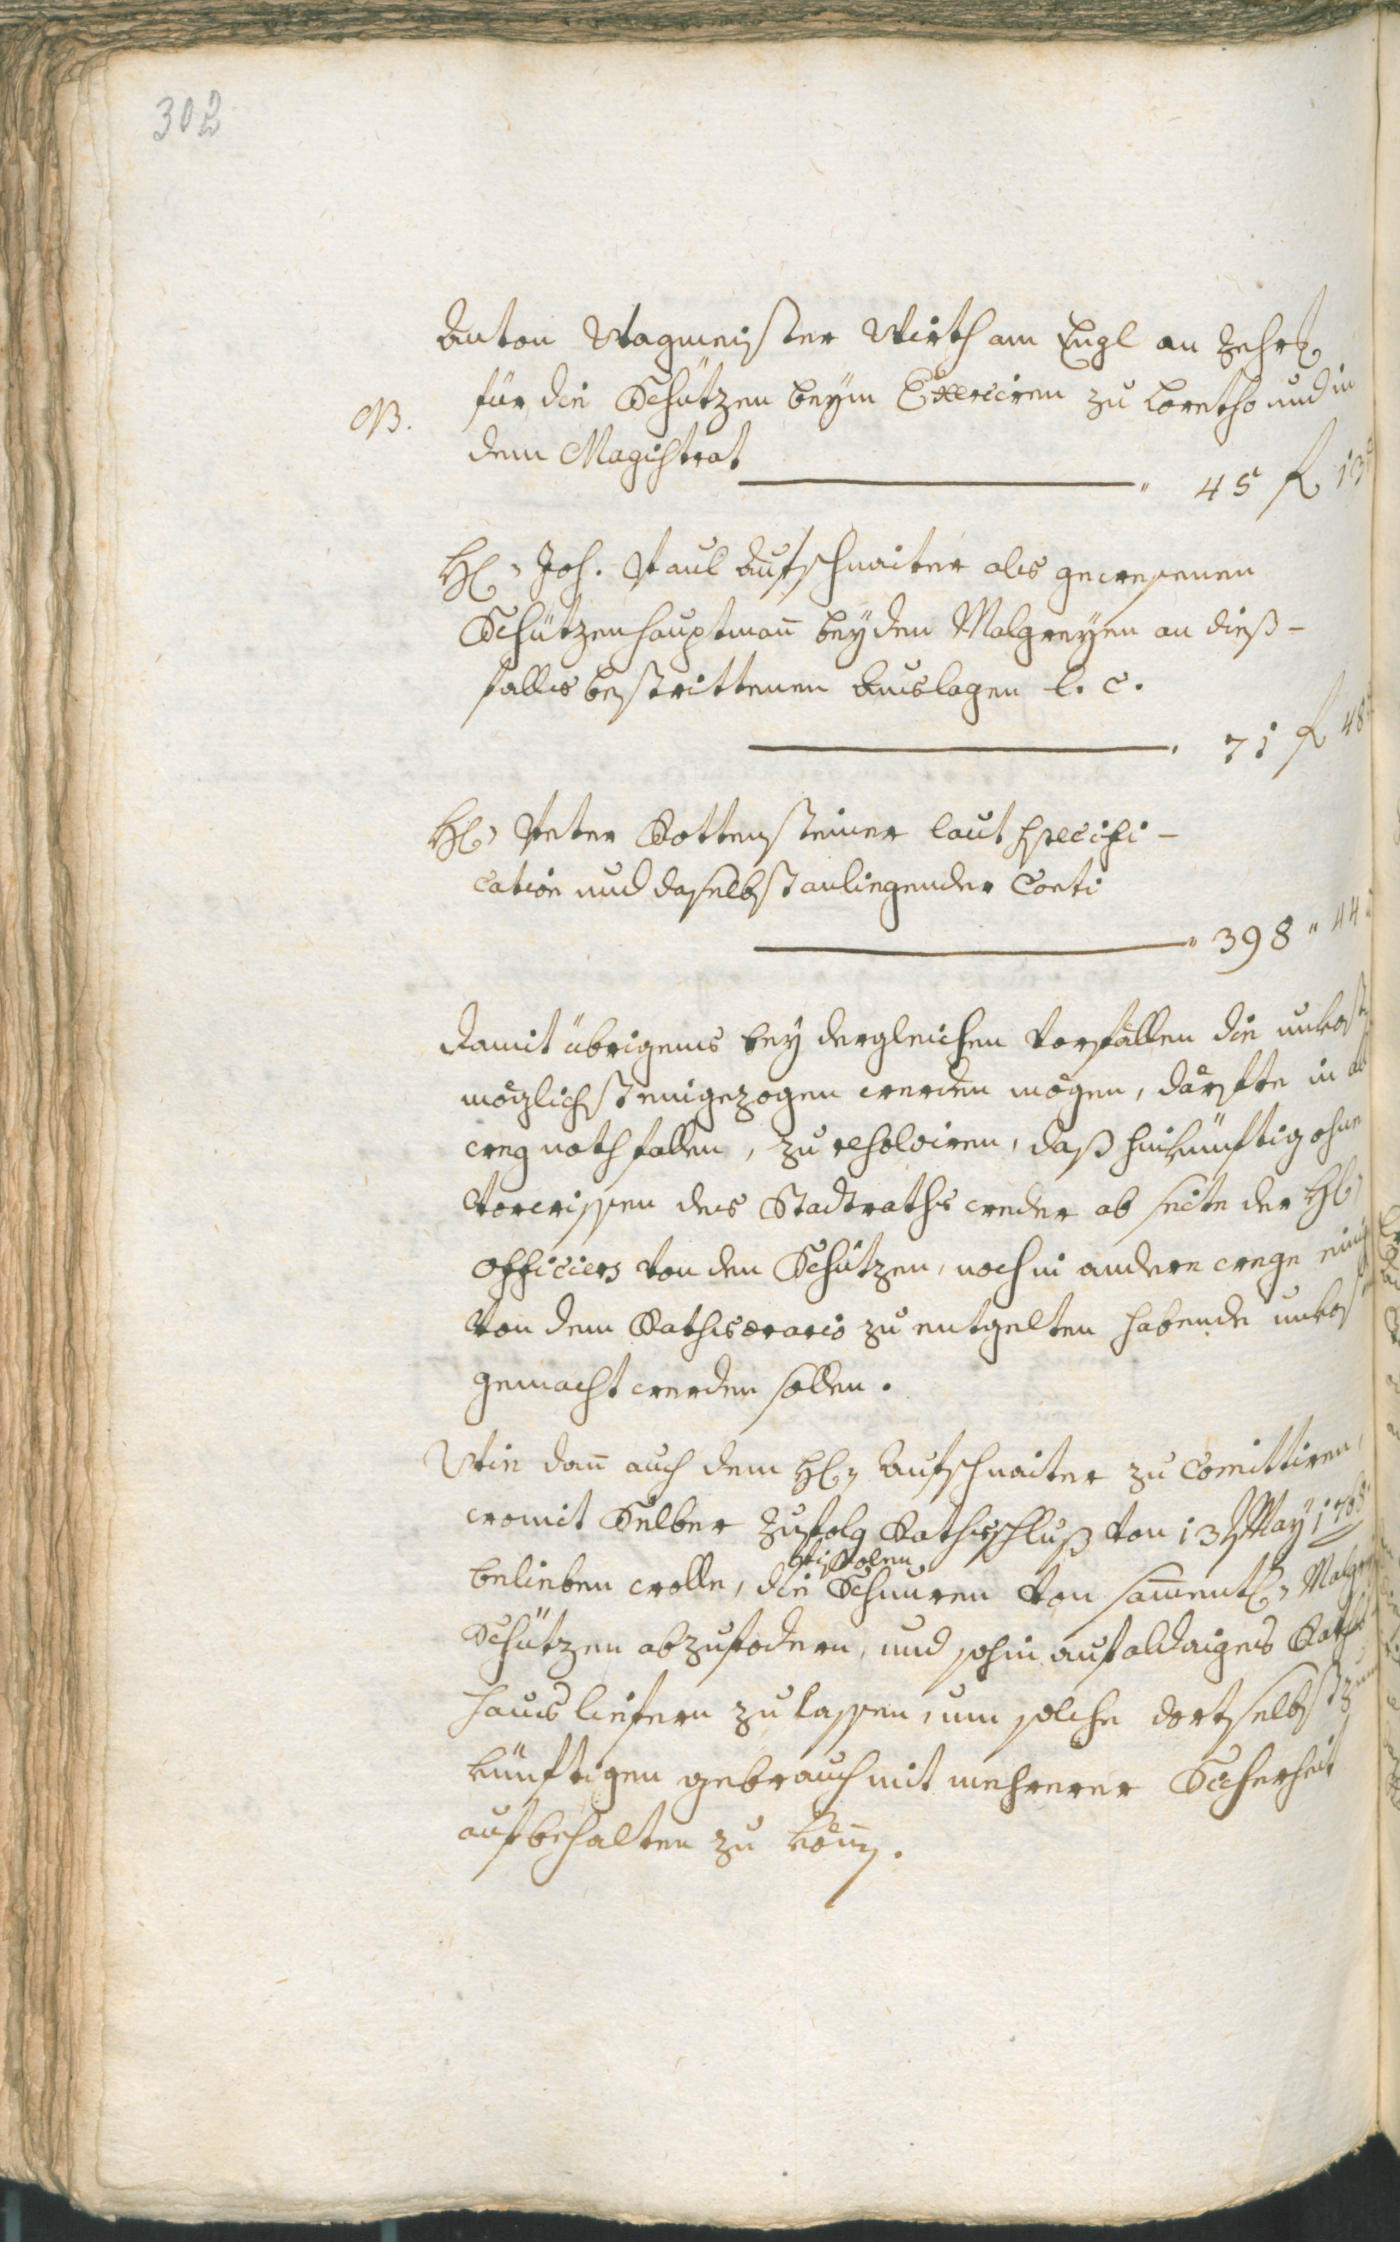 302
Anton Wagmeister Wirth am Engl an Zehrg
für die Schützen beÿm Exerciren zu Loretho und in
NB.
dem Magistrat
45 fl 13
H: Joh. Paul Aufschnaiter als gewesenen
Schützenhauptmañ beÿ den Malgreÿen an dieß-
falls bestrittenen Auslagen l. c.
71 fl 48
H: Peter Rottensteiner laut specifi-
cation und daselbst anliegender Conti
398 " 44
Damit übrigens beÿ dergleichen Vorfällen die unkost
möglichst eingezogen werden mögen, därfte in all
weg noth fallen, zu resolviren, daß hinkünftig ohne
Vorwissen des Stadtraths weder ab seite der H:
officiers von den Schützen, noch in andere wege einig
von dem Rathsærario zu entgelten habende unkost
gemacht werden sollen.
Wie dañ auch dem H: Aufschnaiter zu Comittiren,
womit Selber Zufolg Rathsschluß von 13 Maÿ 1765
Pistolen
belieben wolle, die Schnüren von sam̃entl: Malgreÿ
Schützen abzufodern, und sohin auf aldaiges Rath
haus liefern zu lassen, um solche dortselbst zum
künftigen gebrauch mit mehrerer Sicherheit
aufbehalten zu könn.